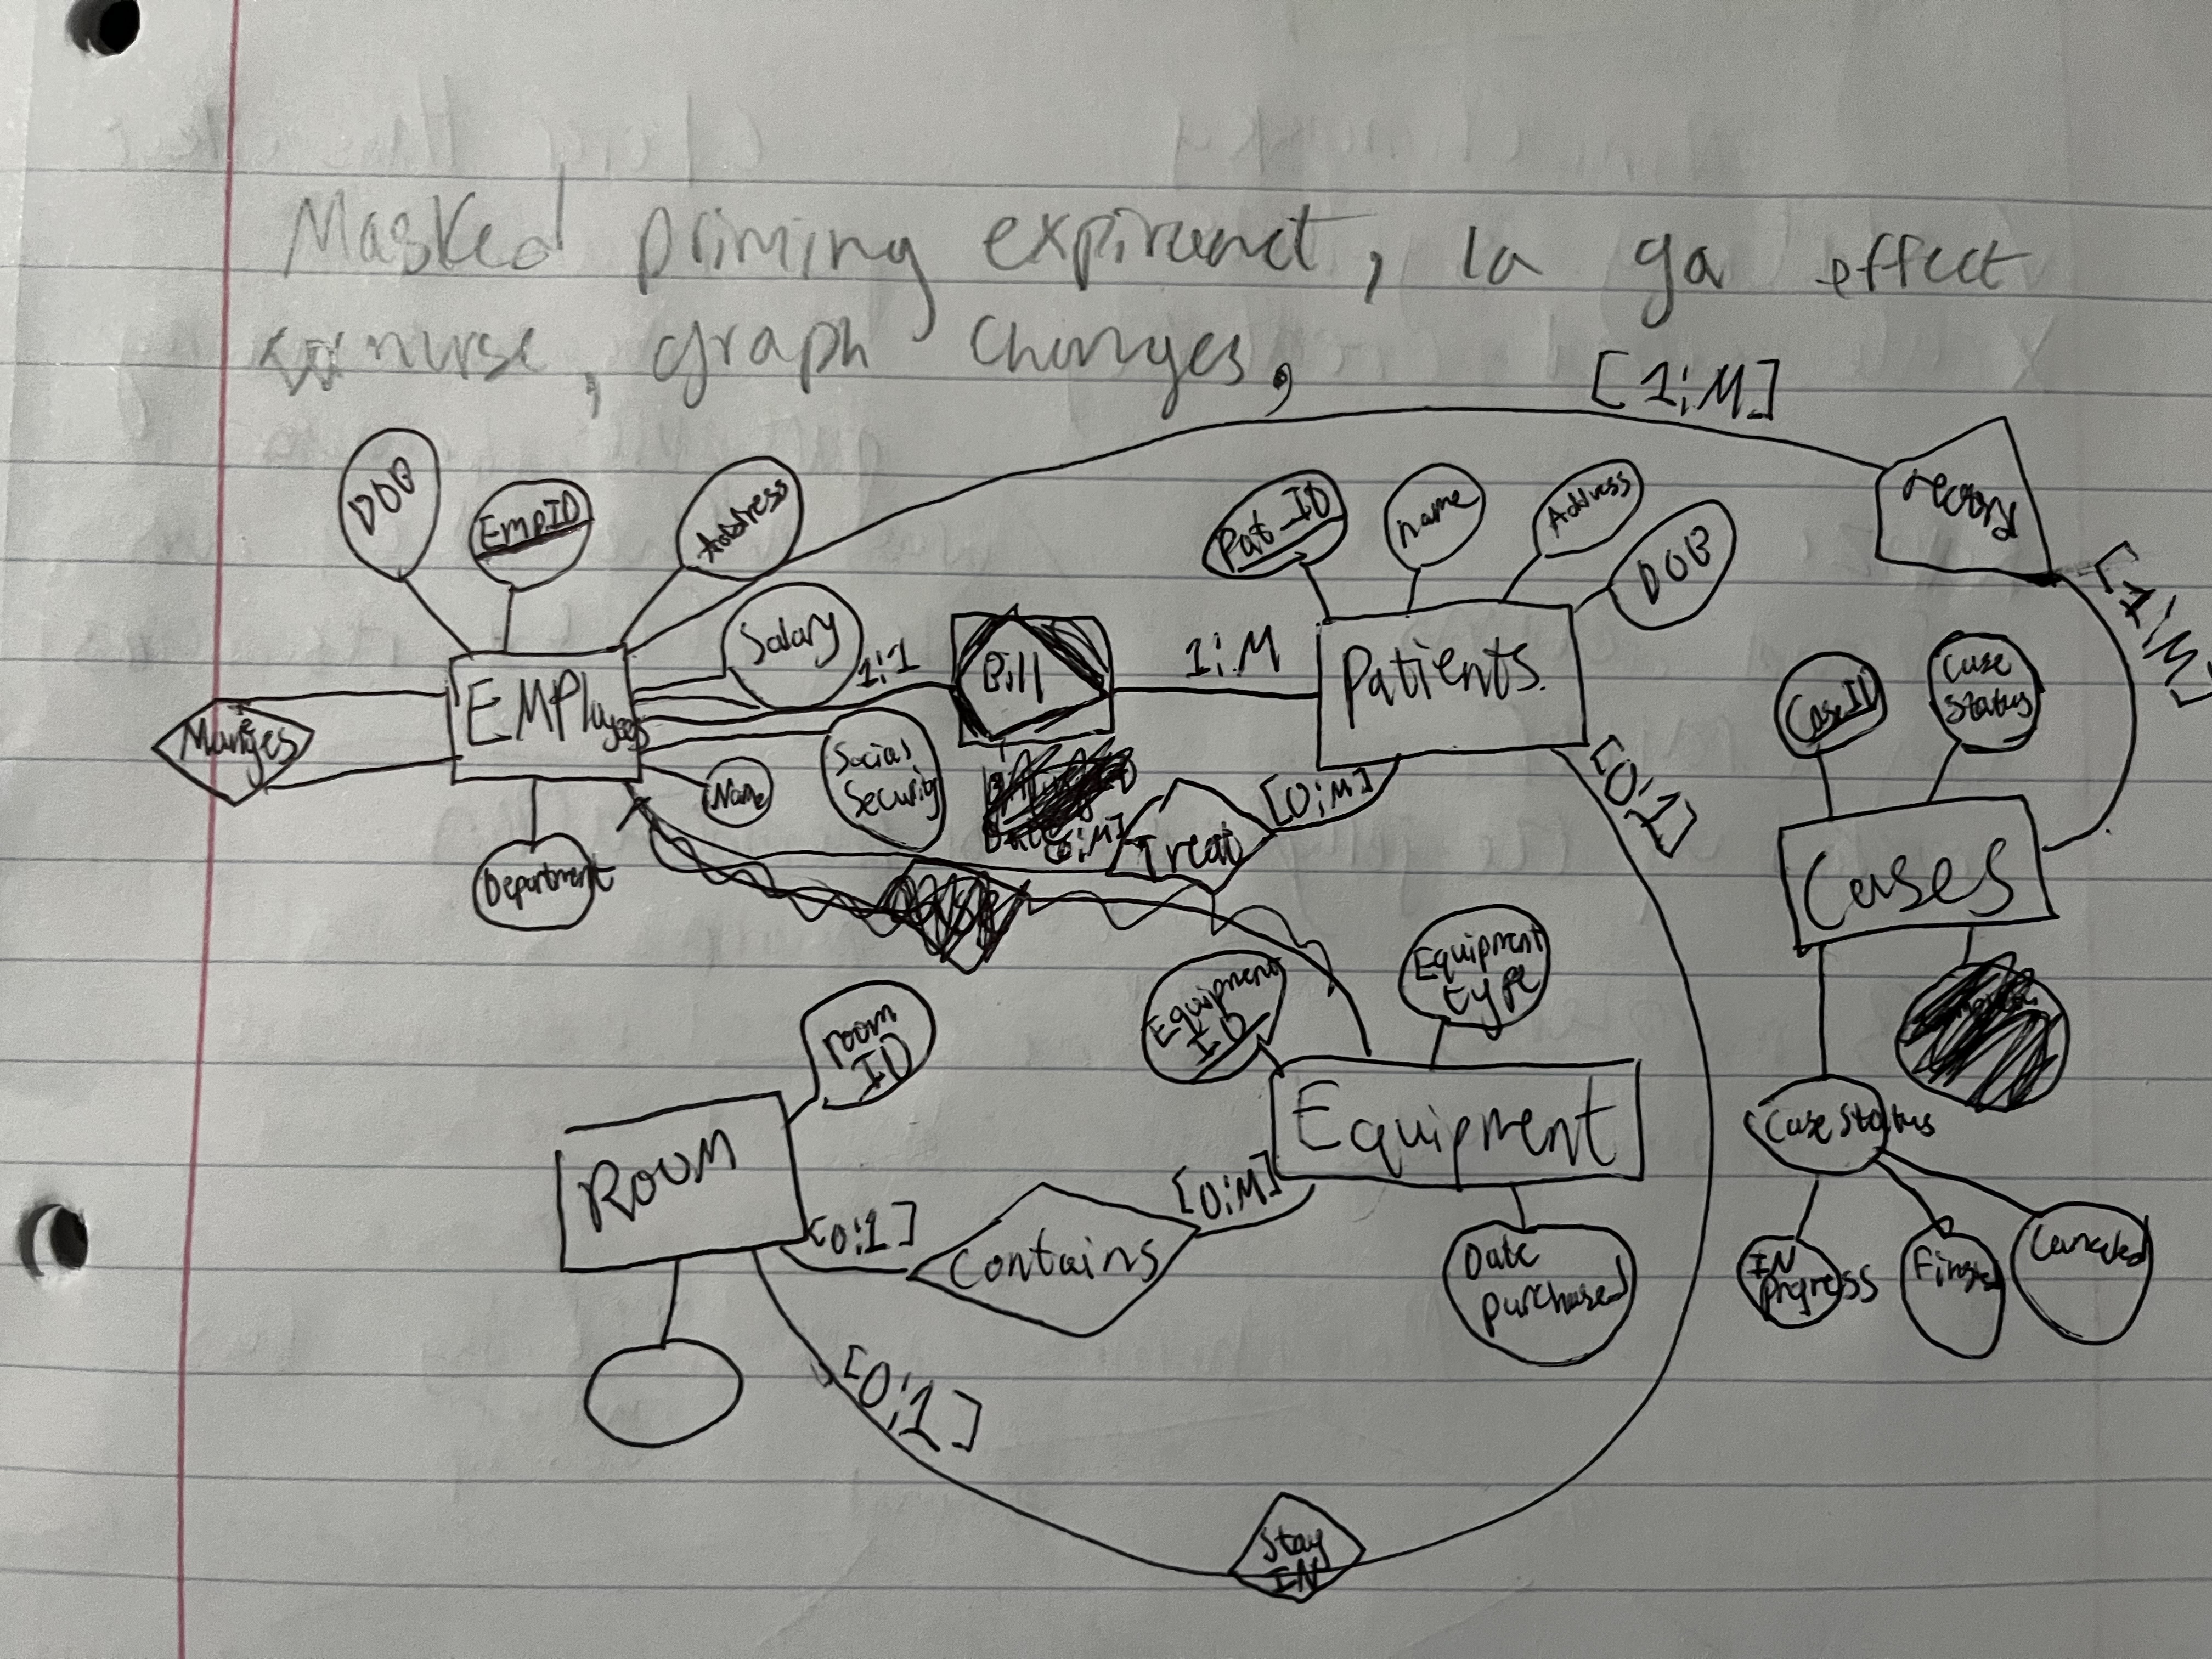 Masked priming expirement, la ga effect
nurse, graph changes,
[1:M]
DOB
EmpID
Address
Pat_ID
name
Address
DOB
record
[1:M]
Salary
1:1
Bill
1:M
Patients
CaseID
Case Status
EMPloyees
Manges
Social Security
Name
[0:M]
[0:M]
Treat
[0:1]
Department
Cases
Equipment ID
Equipment type
room ID
Equipment
Case Status
Room
[0:M]
[0:1]
Contains
Date purchased
IN Prgress
Canceled
[0:1]
Stay IN